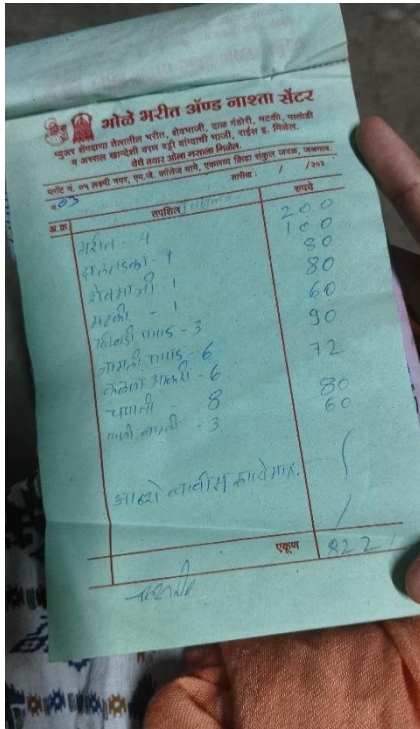 भोळे भरीत अ‍ॅण्ड नाश्ता सेंटर
प्युअर शेंगदाणा तेलातील भरीत, शेवभाजी, दाळ गंडोरी, मटकी, पातोडी
व अस्सल खान्देशी वरण बट्टी वांग्याची भाजी, राईस इ. मिळेल.
येथे तयार ओला मसाला मिळेल.
प्लॉट नं. ०५ लक्ष्मी नगर, एम.जे. कॉलेज मागे, एकलव्य क्रिडा संकुल जवळ, जळगाव.
नं. 03 तारीख : / /२०२
अ.क्र. तपशिल रुपये
भरीत - 4 200
दालतडका - 1 100
शेवभाजी 1 80
मटकी - 1 80
पापड - 3 60
नागली पापड - 6 90
कळणा भाकरी - 6 72
चपाती - 8 80
- 3 60
आठशे बावीस रुपये मात्र.
एकूण 822